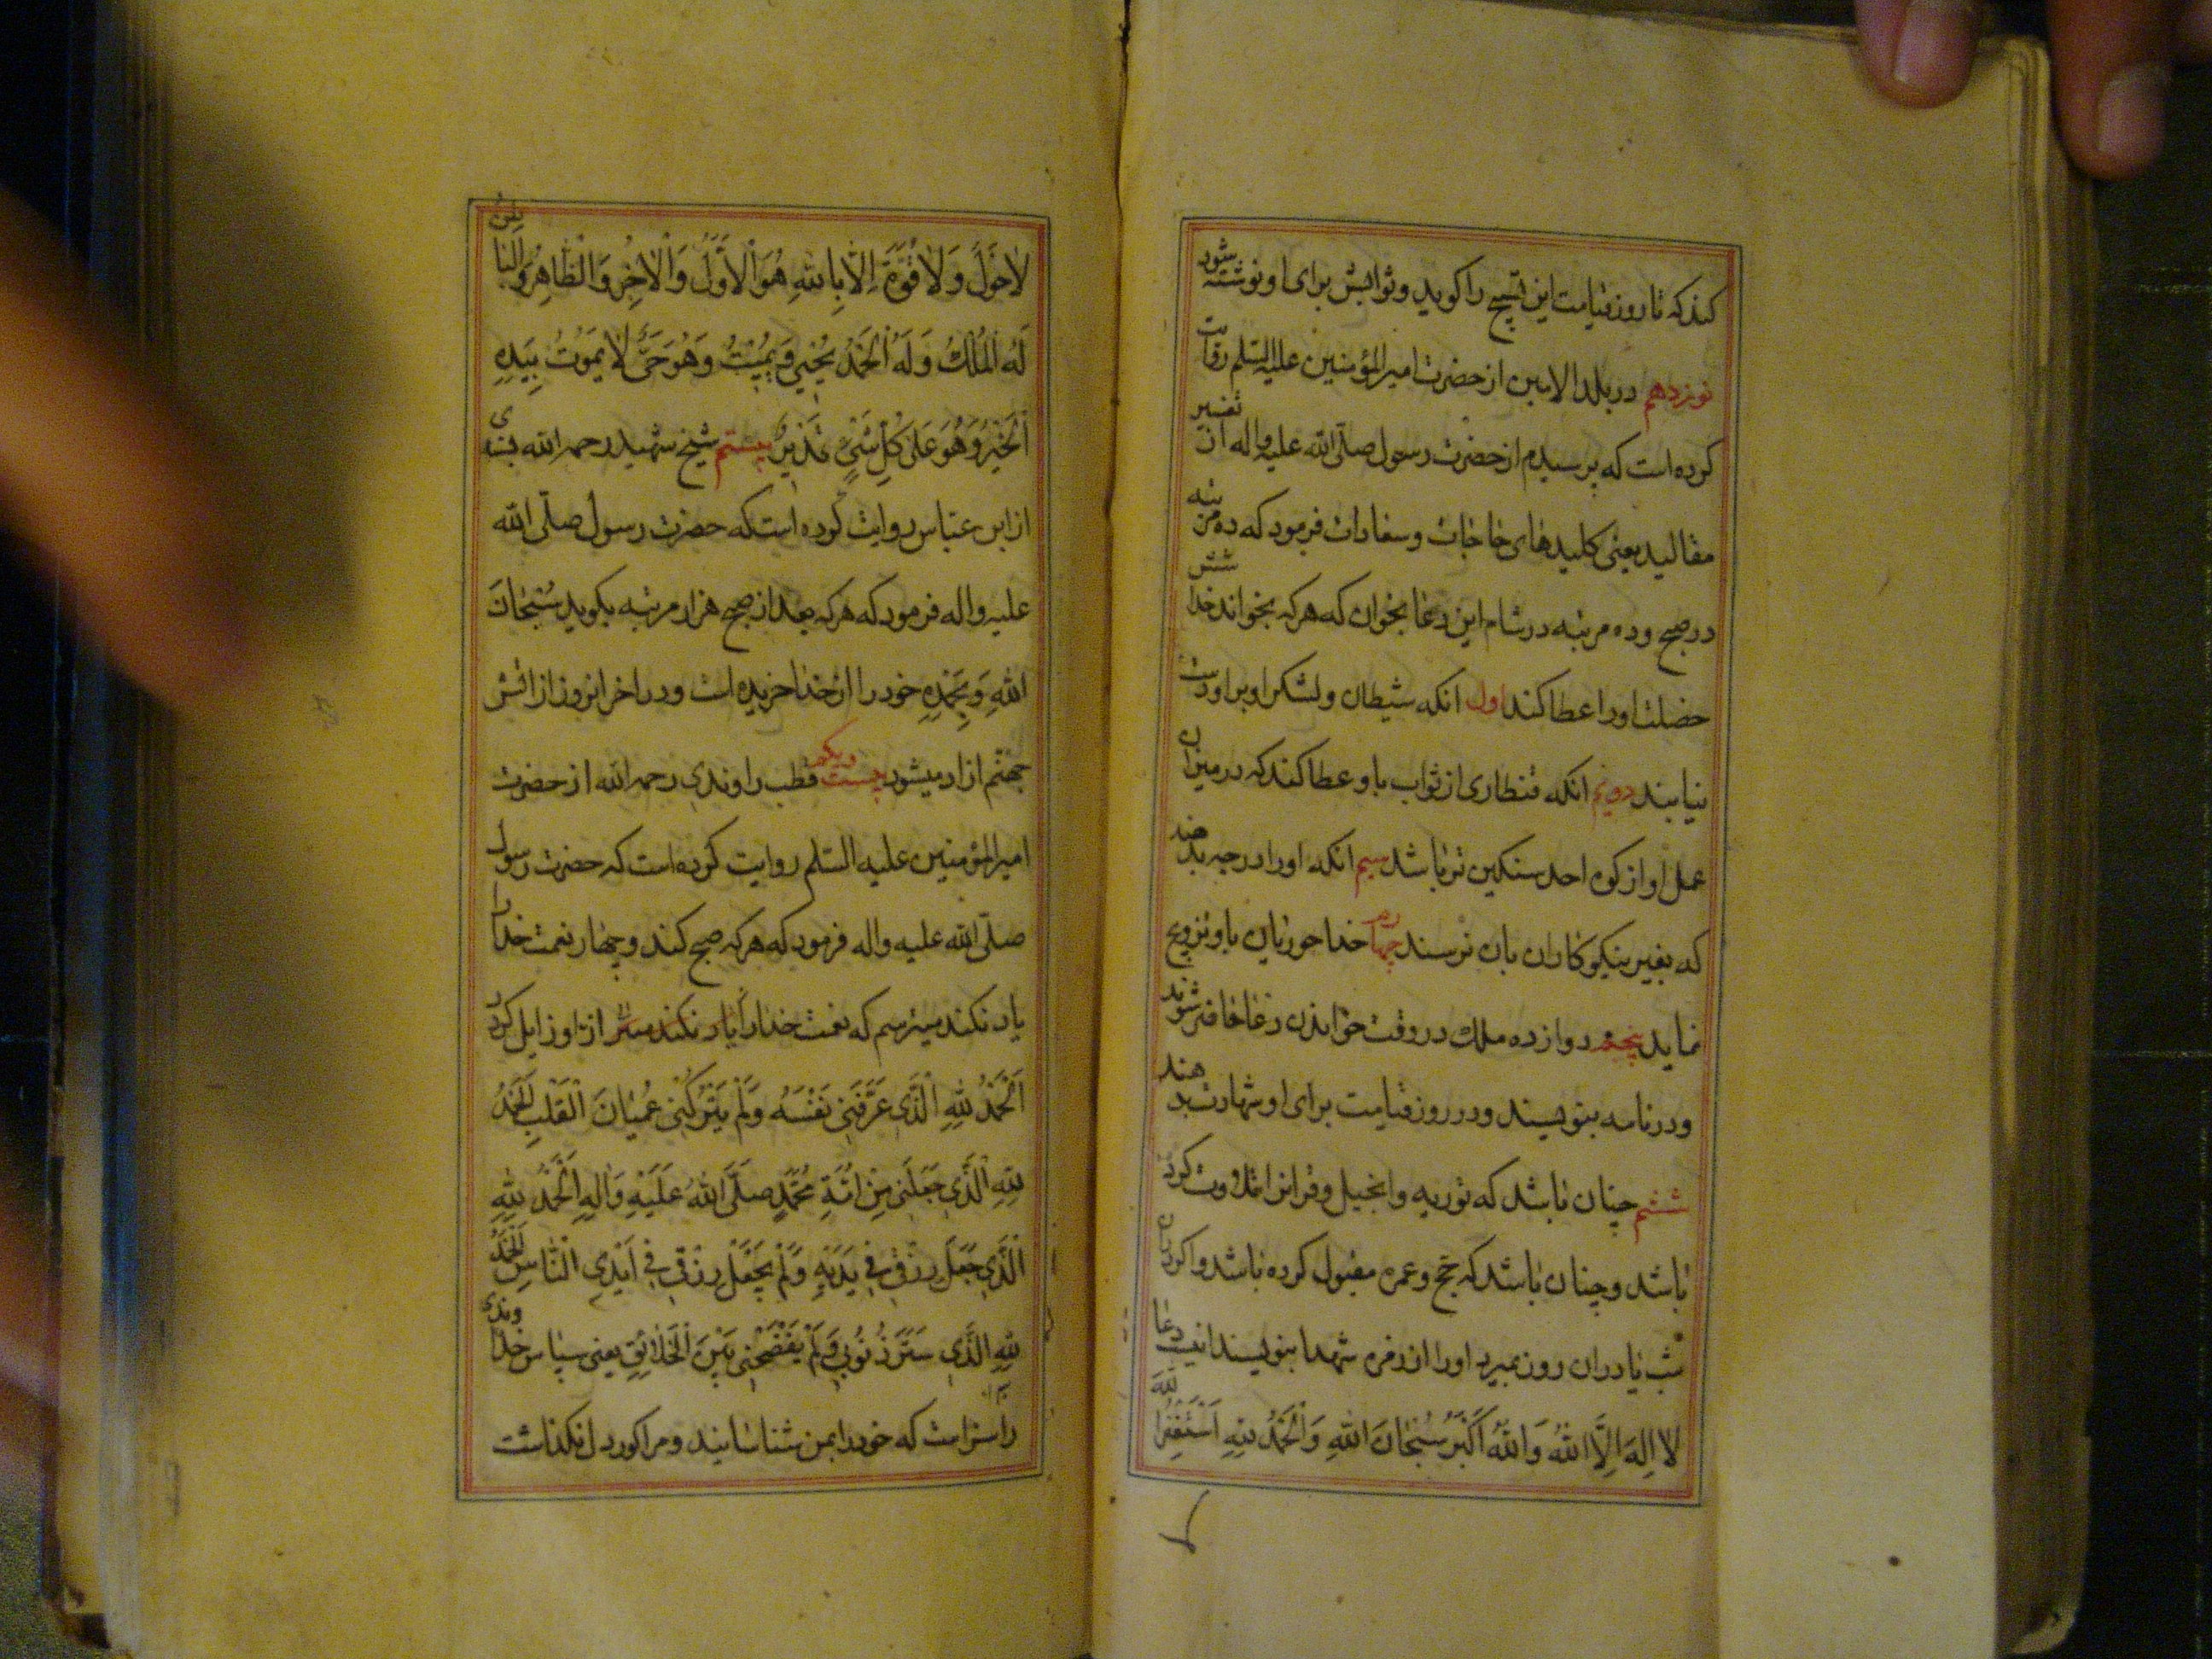 کند که تا روز قیامت این تسبیح را کوید و ثوابش برای او نوشته شود
نوزدهم در بلد الامین از حضرت امیر المؤمنین علیه السلم روایت
کرده است که پرسیدم از حضرت رسول صلّی الله علیه و اله از تفسیر
مقالید یعنی کلیدهای حاجات و سعادات فرمود که ده مرتبه
در صبح و ده مرتبه در شام این دعا بخوان که هرکه بخواند خدا شش
خصلت او را عطا کند اول انکه شیطان و لشکر او بر او دست
نیابند دویم انکه قنطاری از ثواب باو عطا کند که در میزان
عمل او از کوه احد سنکین تر باشد سیم انکه او را درجه بدهند
که بغیر نیکوکاران بان نرسند چهارم خدا حوریان باو تزویج
نماید پنجم دوازده ملک در وقت خواندن دعا حاضر شوند
و در نامه بنویسند و در روز قیامت برای او شهادت بدهند
ششم چنان باشد که توریه و انجیل و قران را تلاوت کرده
باشد و چنان باشد که حج و عمره مقبول کرده باشد و اکر دران
شب یا دران روز بمیرد او را از زمره شهدا بنویسند اینست دعا
لا اِلهَ اِلَّا اللهُ وَاللهُ اَکْبَرُ سُبْحانَ اللهِ وَالْحَمْدُ لِلّهِ اَسْتَغْفِرُ اللهَ
لاحَوْلَ وَلا قُوَّةَ اِلّا بِاللهِ هُوَ الْاَوَّلُ وَالْاخِرُ وَالظّاهِرُ وَالْباطِنُ
لَهُ الْمُلْكُ وَلَهُ الْحَمْدُ یُحْیي وَیُمیتُ وَهُوَ حَيٌّ لا یَمُوتُ بِیَدِهِ
الْخَیْرُ وَهُوَ عَلی کُلِّ شَیْءٍ قَدیرٌ بیستم شیخ شهید رحمه الله بسندی
از ابن عباس روایت کرده است که حضرت رسول صلّی الله
علیه و اله فرمود که هرکه بعد از صبح هزار مرتبه بکوید سُبْحانَ
اللهِ وَبِحَمْدِهِ خود را از خدا خریده است و در اخر ان روز از اتش
جهنّم ازاد میشود بیست و یکم قطب راوندی رحمه الله از حضرت
امیر المؤمنین علیه السلم روایت کرده است که حضرت رسول
صلّی الله علیه و اله فرمود که هرکه صبح کند و چهار نعمت خدا را
یاد نکند میترسم که نعمت خدا از او زایل کردد
اَلْحَمْدُ لِلّهِ الَّذي عَرَّفَني نَفْسَهُ وَلَمْ یَتْرُکْني عُمْیانَ الْقَلْبِ اَلْحَمْدُ
لِلّهِ الَّذي جَعَلَني مِنْ اُمَّةِ مُحَمَّدٍ صَلَّی اللهُ عَلَیْهِ وَالِهِ اَلْحَمْدُ لِلّهِ
الَّذي جَعَلَ رِزْقي في یَدَیْهِ وَلَمْ یَجْعَلْ رِزْقي في اَیْدِي النّاسِ اَلْحَمْدُ
لِلّهِ الَّذي سَتَرَ ذُنُوبي وَلَمْ یَفْضَحْني بَیْنَ الْخَلائِقِ یعنی سپاس خداوندی
را سزاست که خود را بمن شناسانید و مرا کور دل نکذاشت